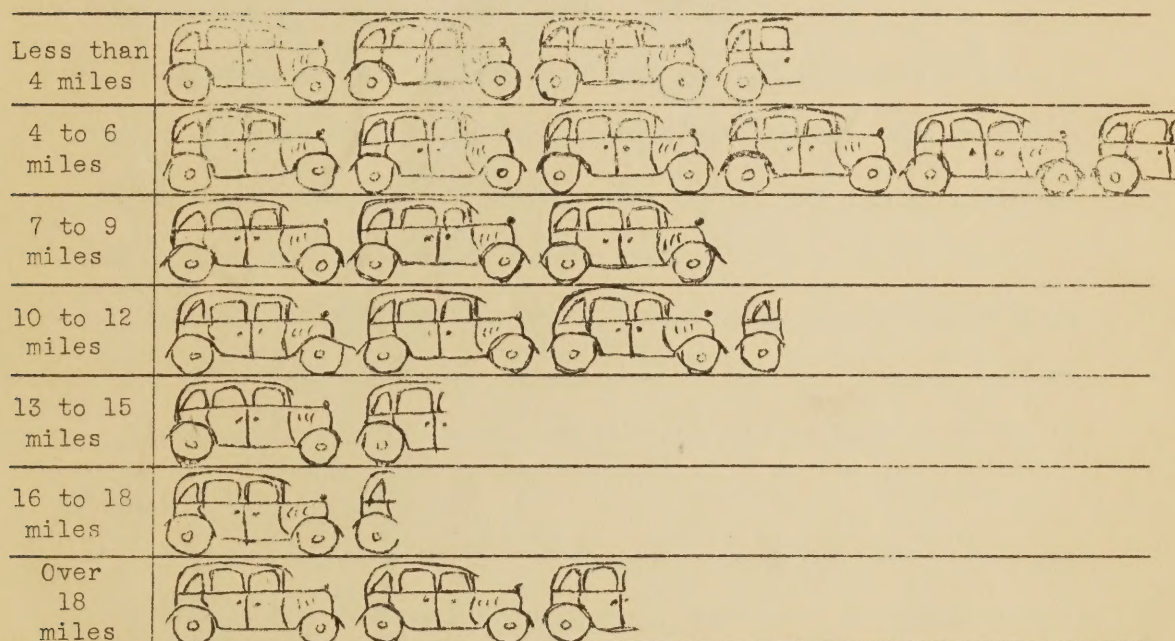 Less than
4 miles
4 to 6
miles
7 to 9
miles
10 to 12
miles
13 to 15
miles
16 to 18
miles
Over
18
miles